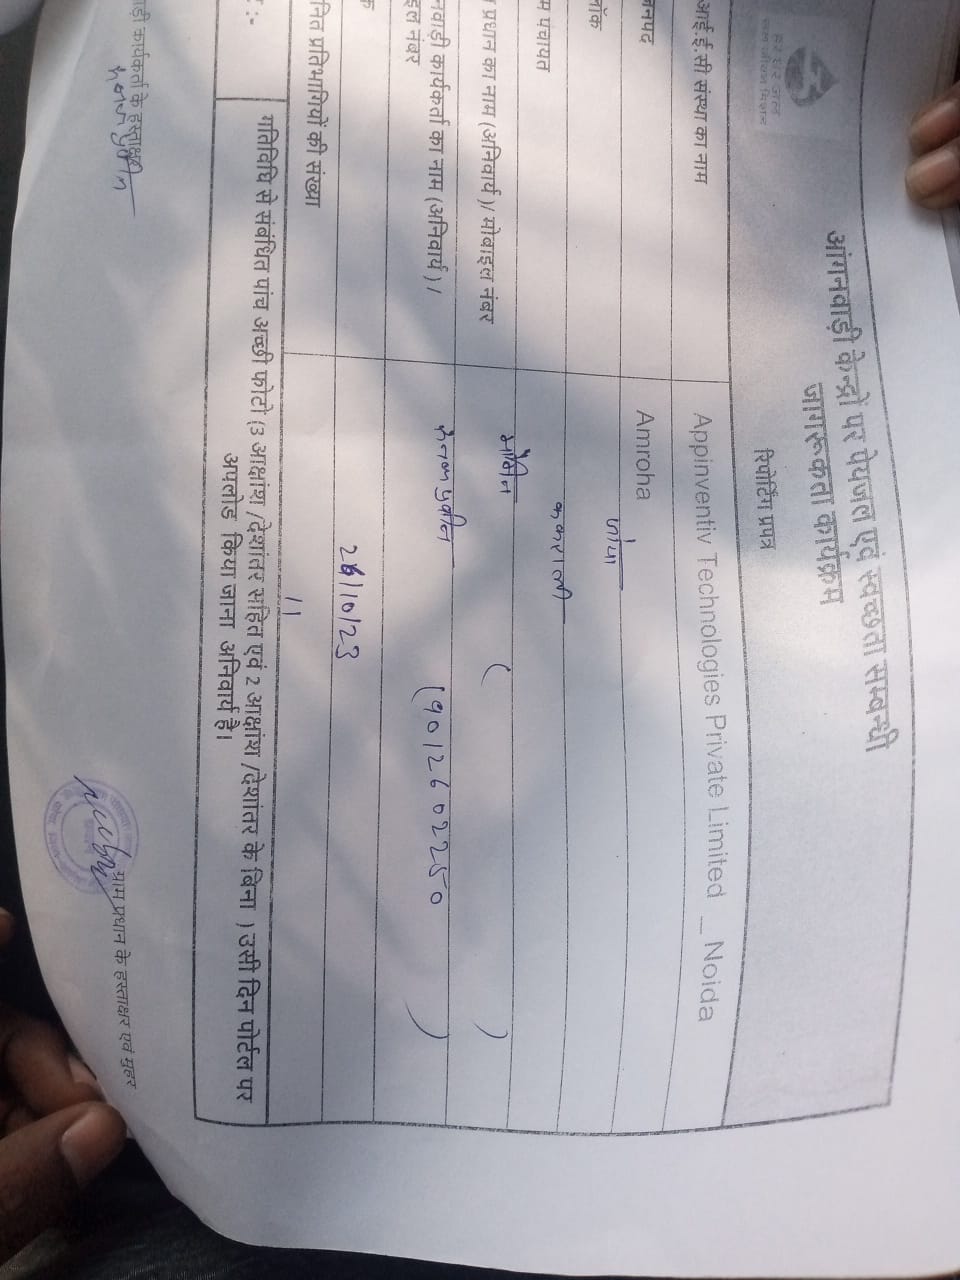 हर घर जल
जल जीवन मिशन
आंगनवाड़ी केन्द्रों पर पेयजल एवं स्वच्छता सम्बन्धी
जागरूकता कार्यक्रम
रिपोर्टिंग प्रपत्र
आई.ई.सी संस्था का नाम Appinventiv Technologies Private Limited _ Noida
जनपद Amroha
लॉक जोया
म पंचायत ककराली
प्रधान का नाम (अनिवार्य)/ मोबाइल नंबर ( )
नवाड़ी कार्यकर्ता का नाम (अनिवार्य) / (9012602250)
इल नंबर
क 26/10/23
नित प्रतिभागियों की संख्या 11
गतिविधि से संबंधित पांच अच्छी फोटो (3 आक्षांश /देशांतर सहित एवं 2 आक्षांश /देशांतर के बिना ) उसी दिन पोर्टल पर
अपलोड किया जाना अनिवार्य है।
ाड़ी कार्यकर्ता के हस्ताक्षर ग्राम प्रधान के हस्ताक्षर एवं मुहर